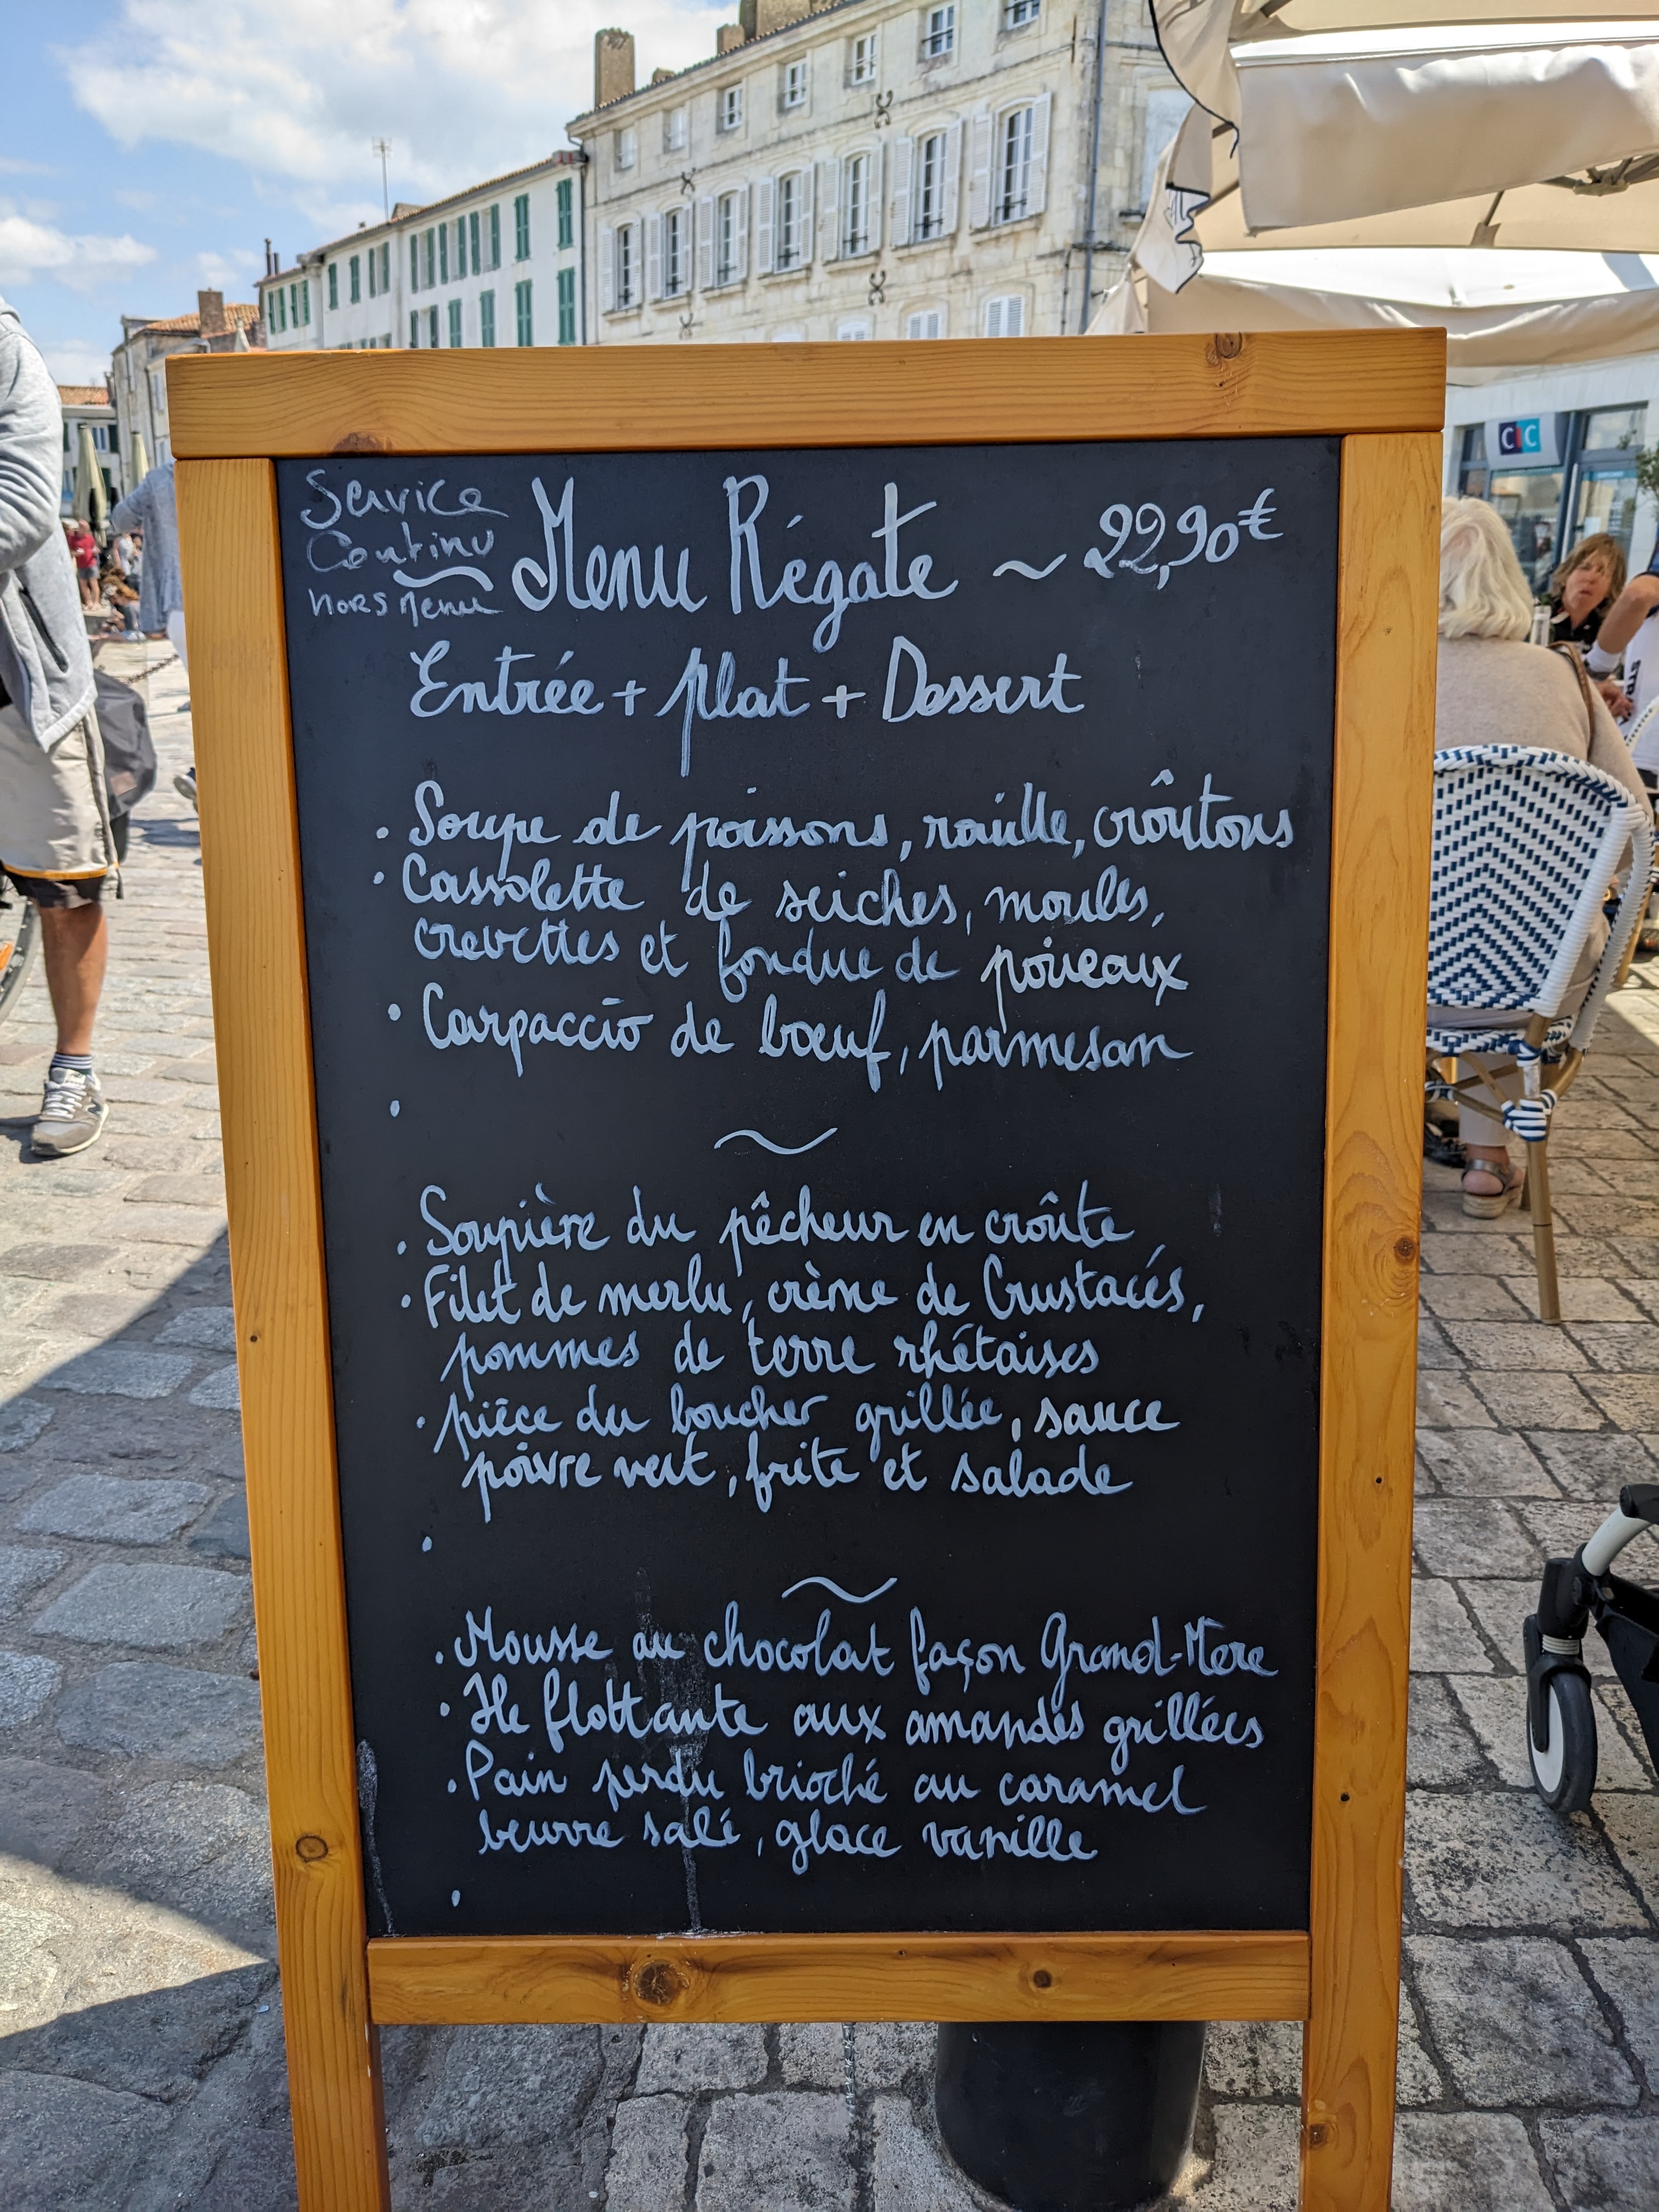 Service
Continu
HORS Menu
Menu Régate ~ 22,90€
Entrée + plat + Dessert
. Soupe de poissons, rouille, croûtons
. Cassolette de seiches, moules,
crevettes et fondue de poireaux
. Carpaccio de boeuf, parmesan
.
~
. Soupière du pêcheur en croûte
. Filet de merlu, crème de Crustacés,
pommes de terre rhétaises
. pièce du boucher grillée, sauce
poivre vert, frite et salade
.
~
. Mousse au chocolat façon Grand-Mère
. Ile flottante aux amandes grillées
. Pain perdu brioché au caramel
beurre salé, glace vanille
.
CIC